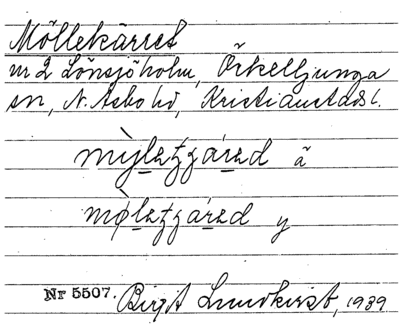 Möllekärret
nr 2 Lönsjöholm, Örkelljunga
sn, N. Åsbo hd, Kristianstads l.
mỳlətʒɑ́rəd ä
mø̀lətʒɑ́rəd y
Nr 5507. Birgit Lundkvist, 1939